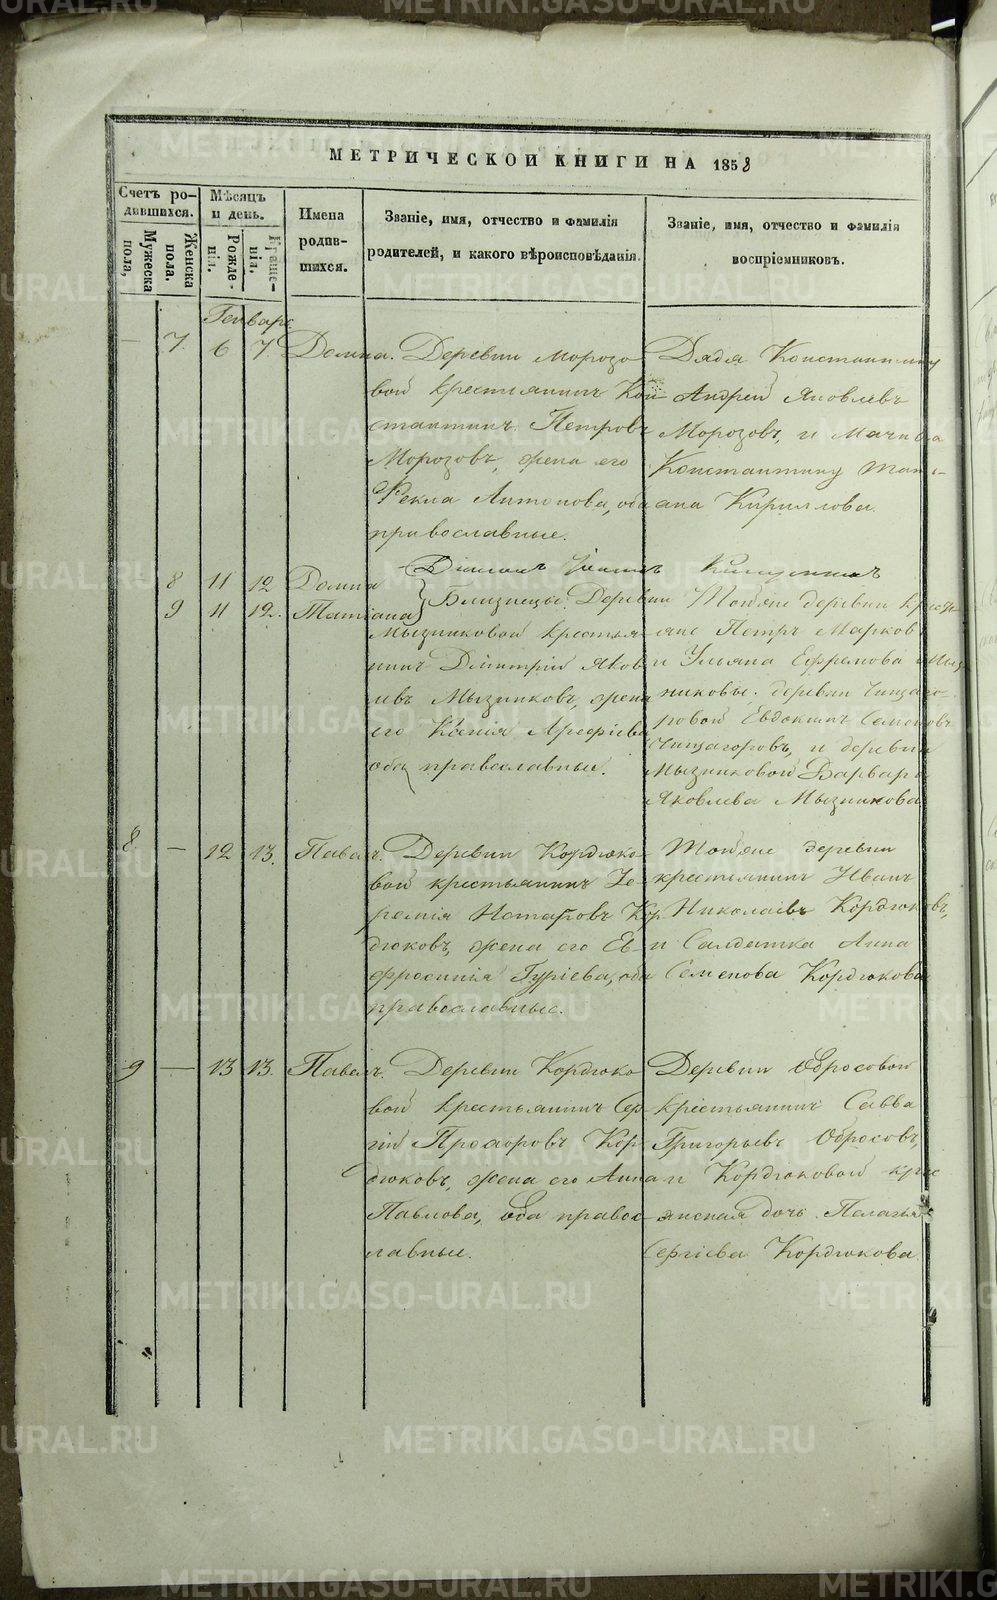 МЕТРИЧЕСКОЙ КНИГИ НА 1858
Счетъ ро-
дившихся.
Мужеска
пола,
Женска
пола.
Мѣсяцъ
и день.
Рожде-
нія.
Креще-
нія.
Имена
родив-
шихся.
Званіе, имя, отчество и фамилія
родителей, и какого вѣроисповѣданія.
Званіе, имя, отчество и фамилія
воспріемниковъ.
Генварь
— 7. 6 7. Домна.
Деревни Морозо
вой крестьянинъ Кон
стантинъ Петровъ
Морозовъ, жена его
Фекла Антонова, оба
православные.
Дядя Константину
Андрей Яковлевъ
Морозовъ, и Мачиха
Константину Тать-
яна Кириллова.
8 11 12 Домна
9 11 12. Татіана
Близнецы. Деревни
Мызниковой крестья-
нинъ Димитрій Яков
левъ Мызниковъ, жена
его Ксенія Арефіева
оба православные.
Тойже деревни крест
Петръ Марков
и Ульяна Ефремова Мыз
никовы. деревни Чищаго-
ровой Евдокимъ Семеновъ
Чищагоровъ, и деревни
Мызниковой Варвара
Яковлева Мызникова
8 — 12 13. Павелъ.
Деревни Кордюко-
вой крестьянинъ Іе-
ремія Кор
дюковъ, жена его Ев-
фросинія Гуріева, оба
православные.
Тойже деревни
крестьянинъ Иванъ
Николаевъ Кордюковъ,
и Салдатка Анна
Семенова Кордюкова
9 — 13 13. Павелъ.
Деревни Кордюко
вой крестьянинъ Сер
гій Прохоровъ Кор-
дюковъ, жена его Анна
Павлова, оба правос-
лавные.
Деревни Обросовой
крестьянинъ Савва
Григорьевъ Обросовъ,
и Кордюковой крес
янская дочь Пелагья
Сергіева Кордюкова
METRIKI.GASO-URAL.RU